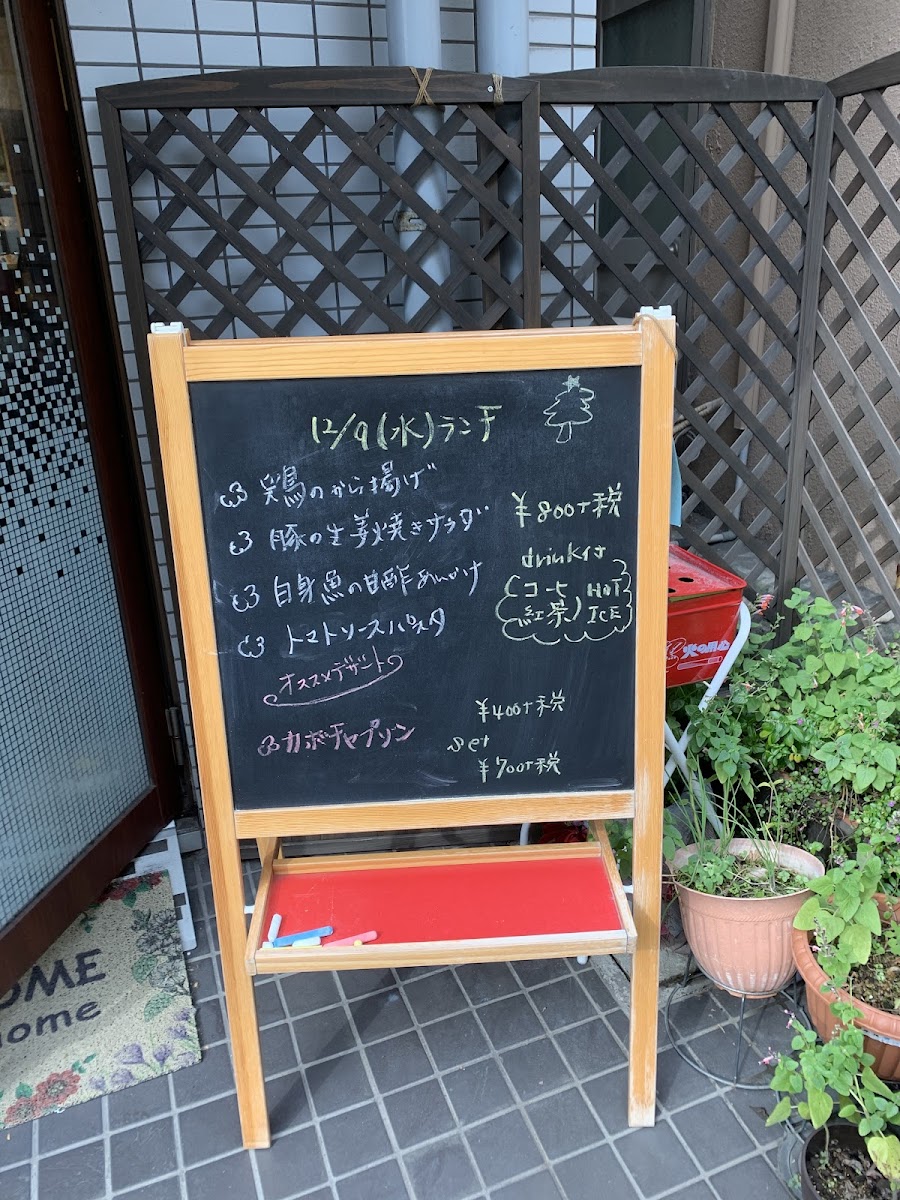 12/9(水)ランチ
鶏のから揚げ
豚の生姜焼きサラダ
白身魚の甘酢あんかけ
トマトソースパスタ
¥800+税
drink付
コーヒ HOT
紅茶 ICE
オススメデザート
カボチャプリン
¥400+税
set
¥700+税
火の用心
OME
Home